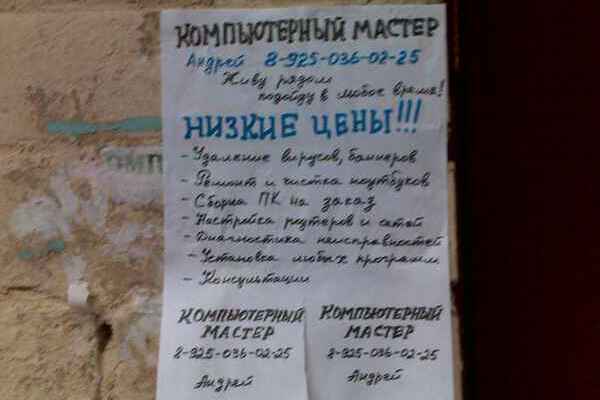 КОМПЬЮТЕРНЫЙ МАСТЕР
Андрей 8-925-036-02-25
Живу рядом
подойду в любое время!
НИЗКИЕ ЦЕНЫ!!!
- Удаление вирусов, баннеров
- Ремонт и чистка ноутбуков
- Сборка ПК на заказ
- Настройка роутеров и сетей
- Диагностика неисправностей
- Установка любых программ
- Консультации
КОМПЬЮТЕРНЫЙ
МАСТЕР
8-925-036-02-25
Андрей
КОМПЬЮТЕРНЫЙ
МАСТЕР
8-925-036-02-25
Андрей